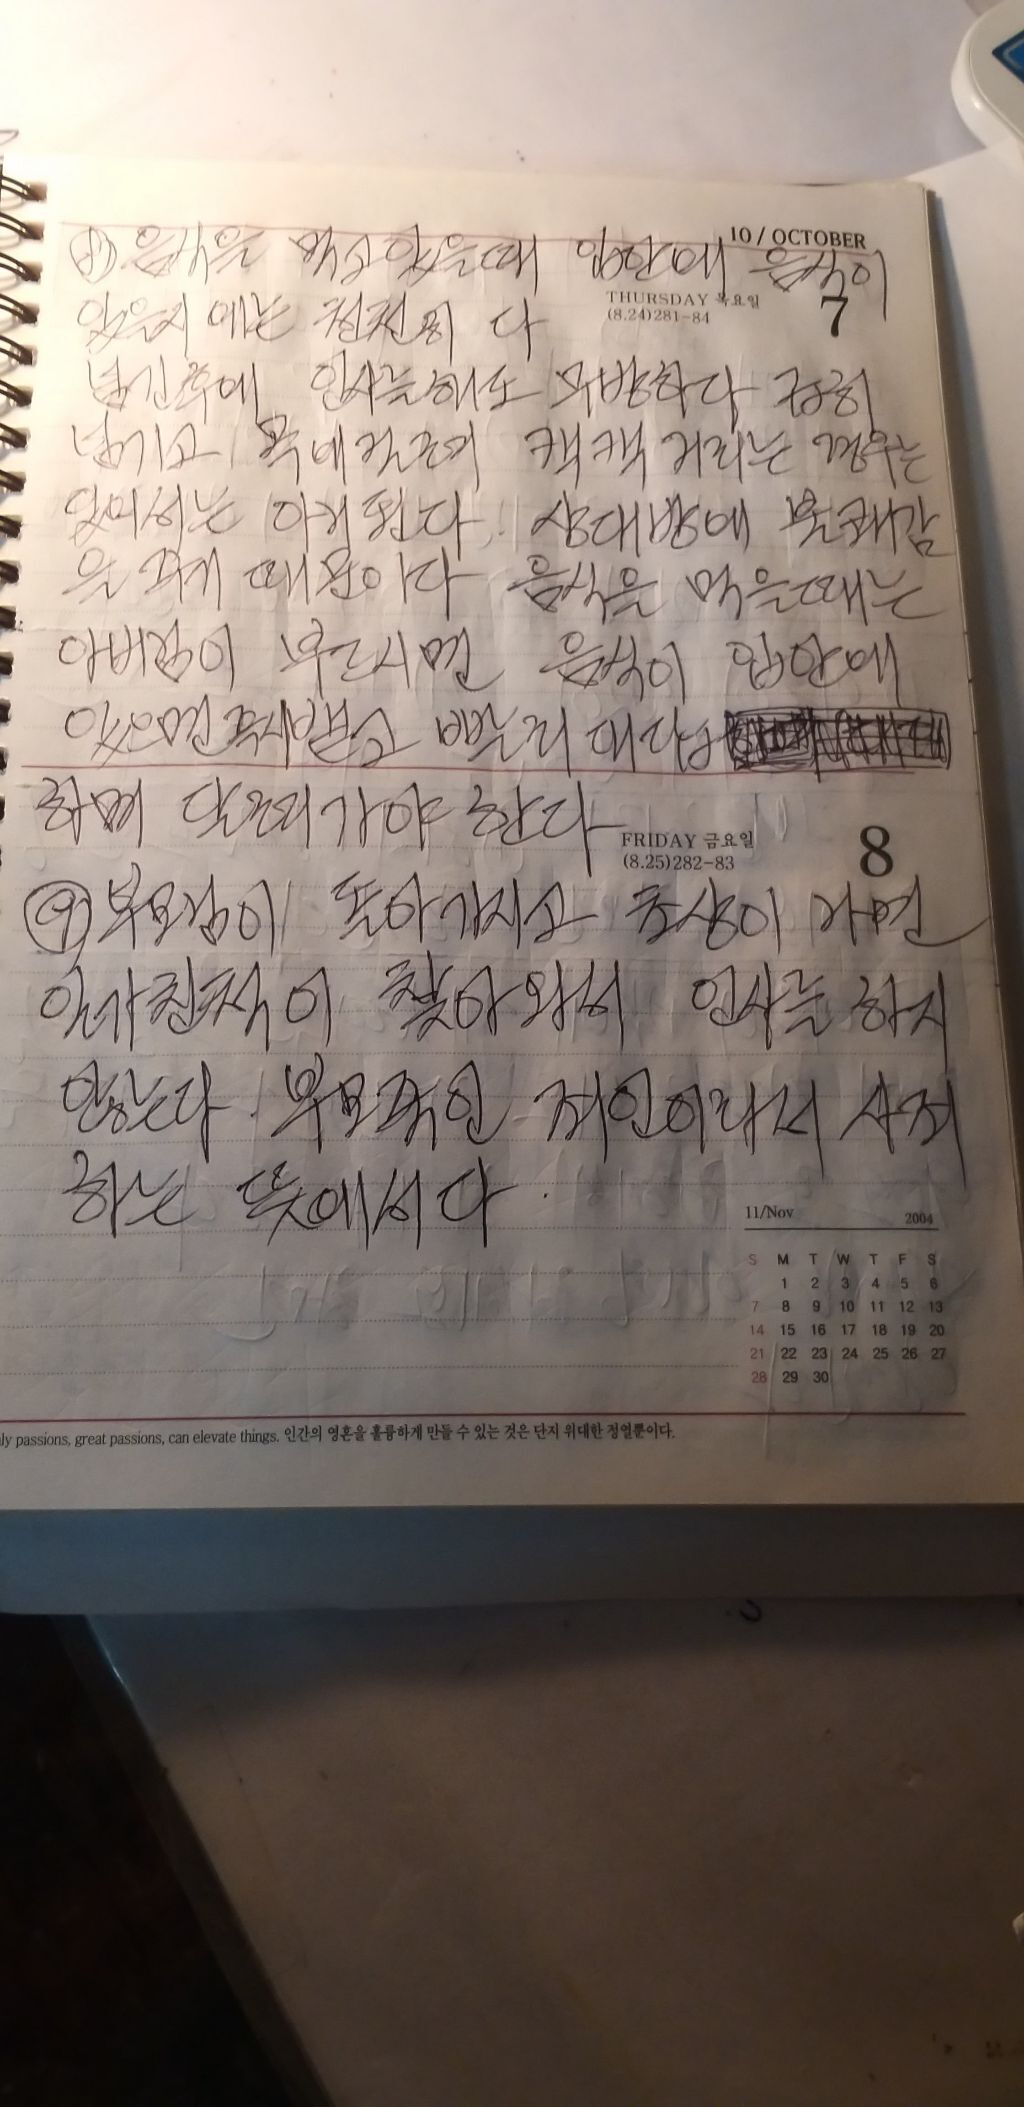 10 / OCTOBER
⑧ 음식을 먹고 있을때 입안에 음식이
THURSDAY 목요일
(8.24)281-84
7
있을시 에는 천천히 다
넘긴후에 인사를해도 무방하다 급히
넘기고 목에걸르거 캑캑거리는 경우는
있어서는 아니 된다. 상대방에 불쾌감
을 주기 때문이다 음식을 먹을때는
아버님이 부르시면 음식이 입안에
있으면 즉시뱉고 빨리 대답
하며 달려가야 한다
FRIDAY 금요일
(8.25)282-83
8
⑨ 부모님이 돌아가시고 초상이 나면
일가친척이 찾아와서 인사를 하지
않는다. 부모죽인 죄인이라서 사죄
하는 뜻에서다.
11/Nov 2004
S M T W T F S
1 2 3 4 5 6
7 8 9 10 11 12 13
14 15 16 17 18 19 20
21 22 23 24 25 26 27
28 29 30
ly passions, great passions, can elevate things. 인간의 영혼을 훌륭하게 만들 수 있는 것은 단지 위대한 정열뿐이다.